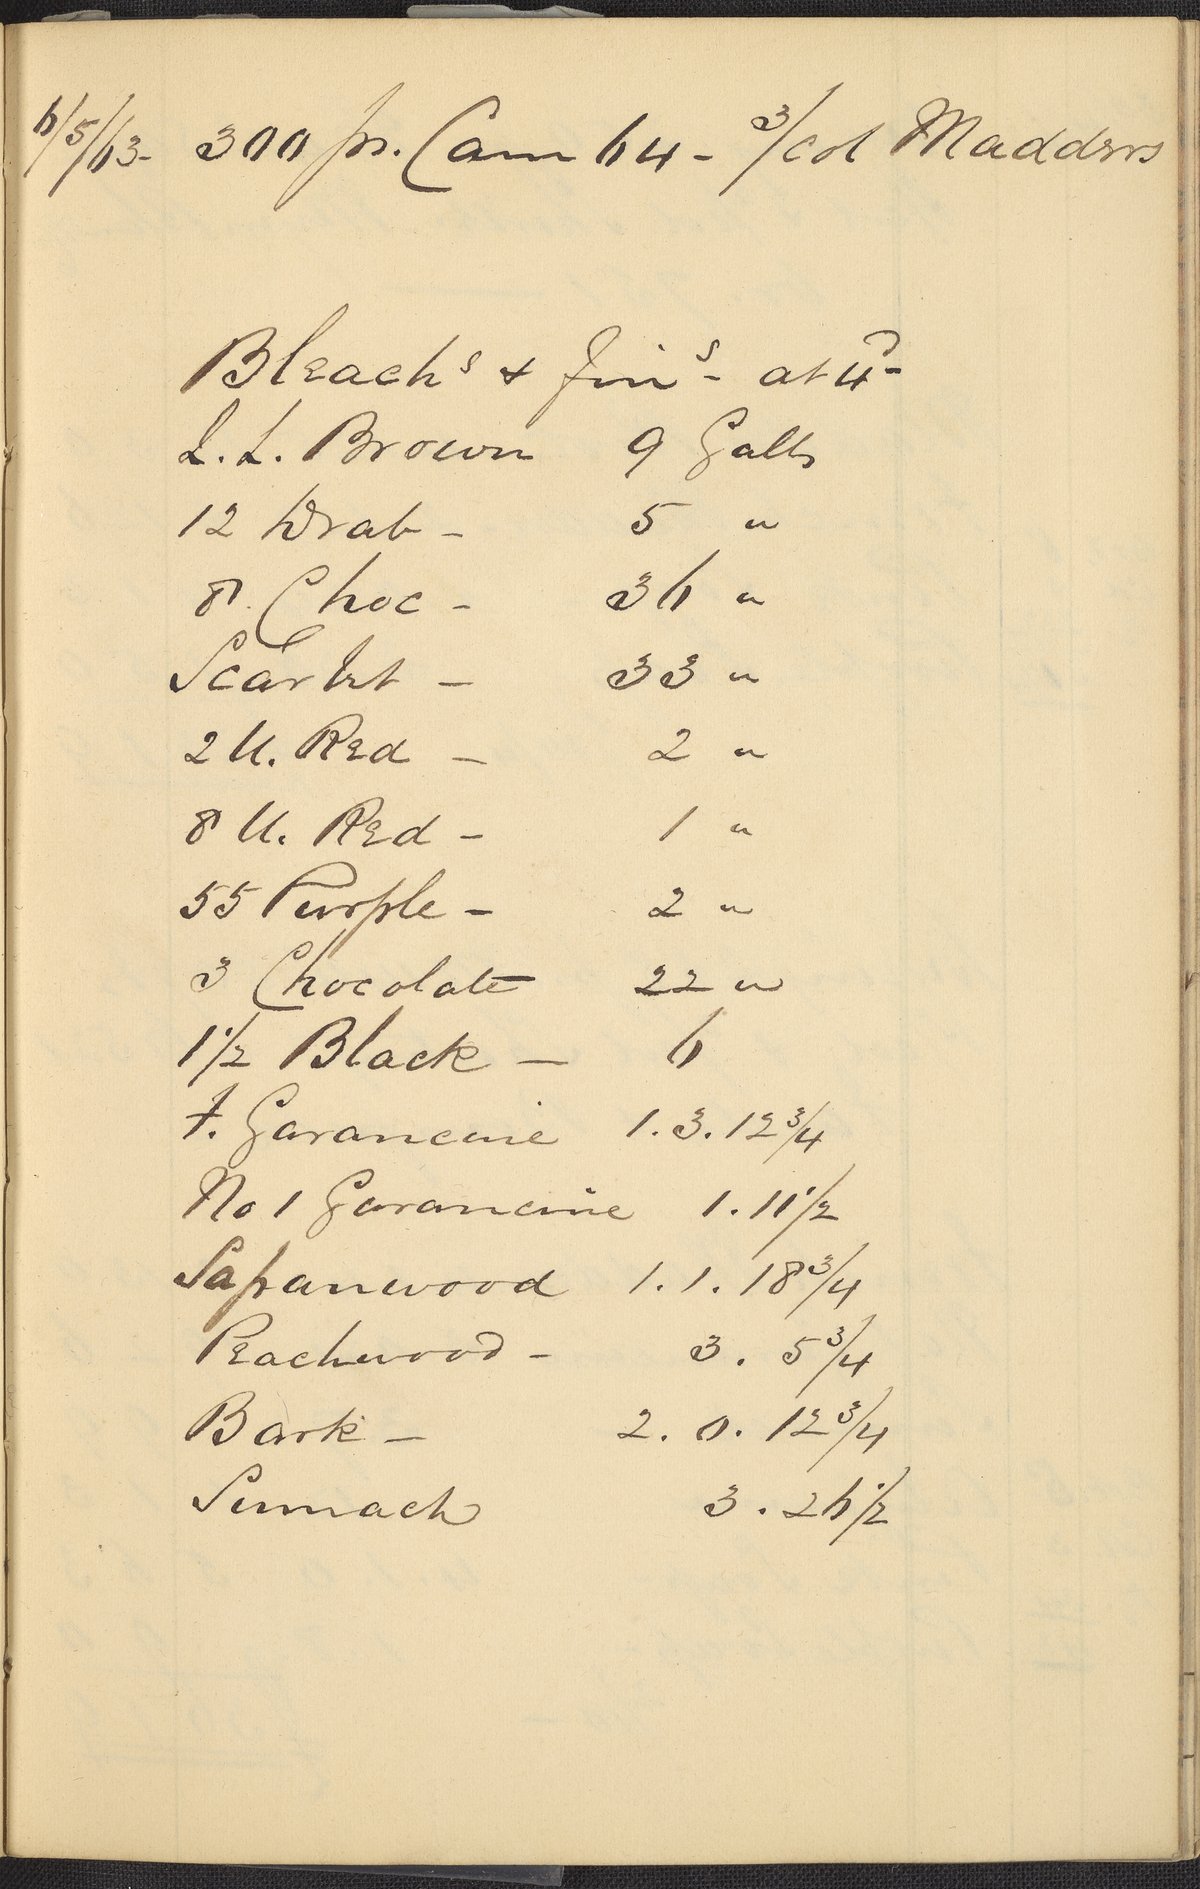 6/5/63- 300 ps. Cam 64 - 3/col Madders
Bleachs & Finis - at 4d -
L. L. Brown 9 Galls
12 Drab - 5 "
8. Choc - 36 "
Scarlet - 33 "
2 U. Red - 2 "
8 U. Red - 1 "
55 Purple - 2 "
3 Chocolate 22 "
1 1/2 Black - 6
F. Garancine 1. 3. 12 3/4
No 1 Garancine 1. 11 1/2
Sapanwood 1. 1. 18 3/4
Peachwood - 3. 5 3/4
Bark - 2. 0. 12 3/4
Sumach 3. 26 1/2